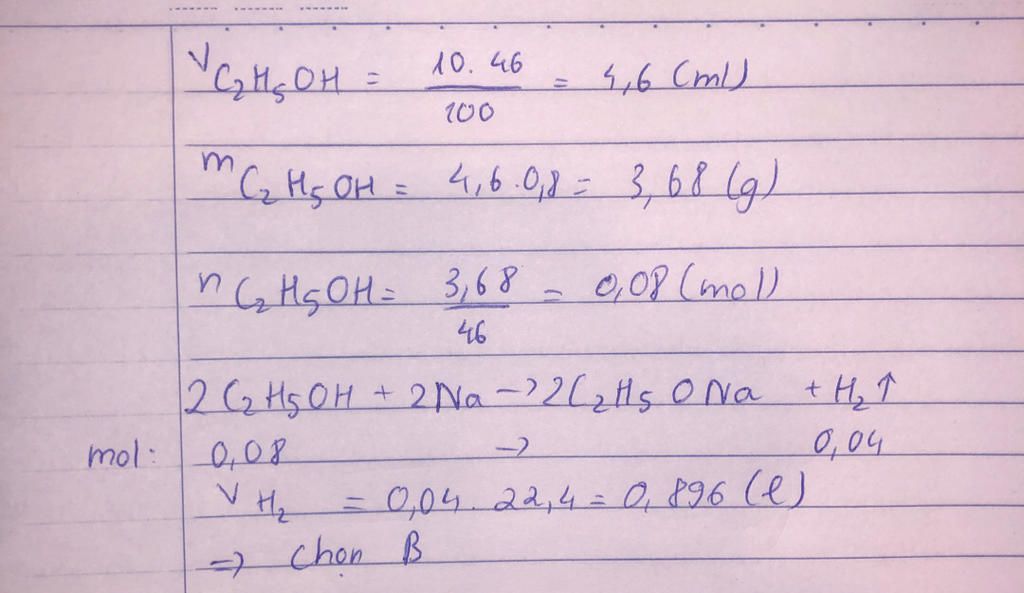 V C₂H₅OH = 10.46/100 = 4,6 (ml)
m C₂H₅OH = 4,6.0,8 = 3,68 (g)
n C₂H₅OH = 3,68/46 = 0,08 (mol)
2C₂H₅OH + 2Na -> 2C₂H₅ONa + H₂↑
mol: 0,08 -> 0,04
V H₂ = 0,04. 22,4 = 0,896 (l)
=> Chọn B